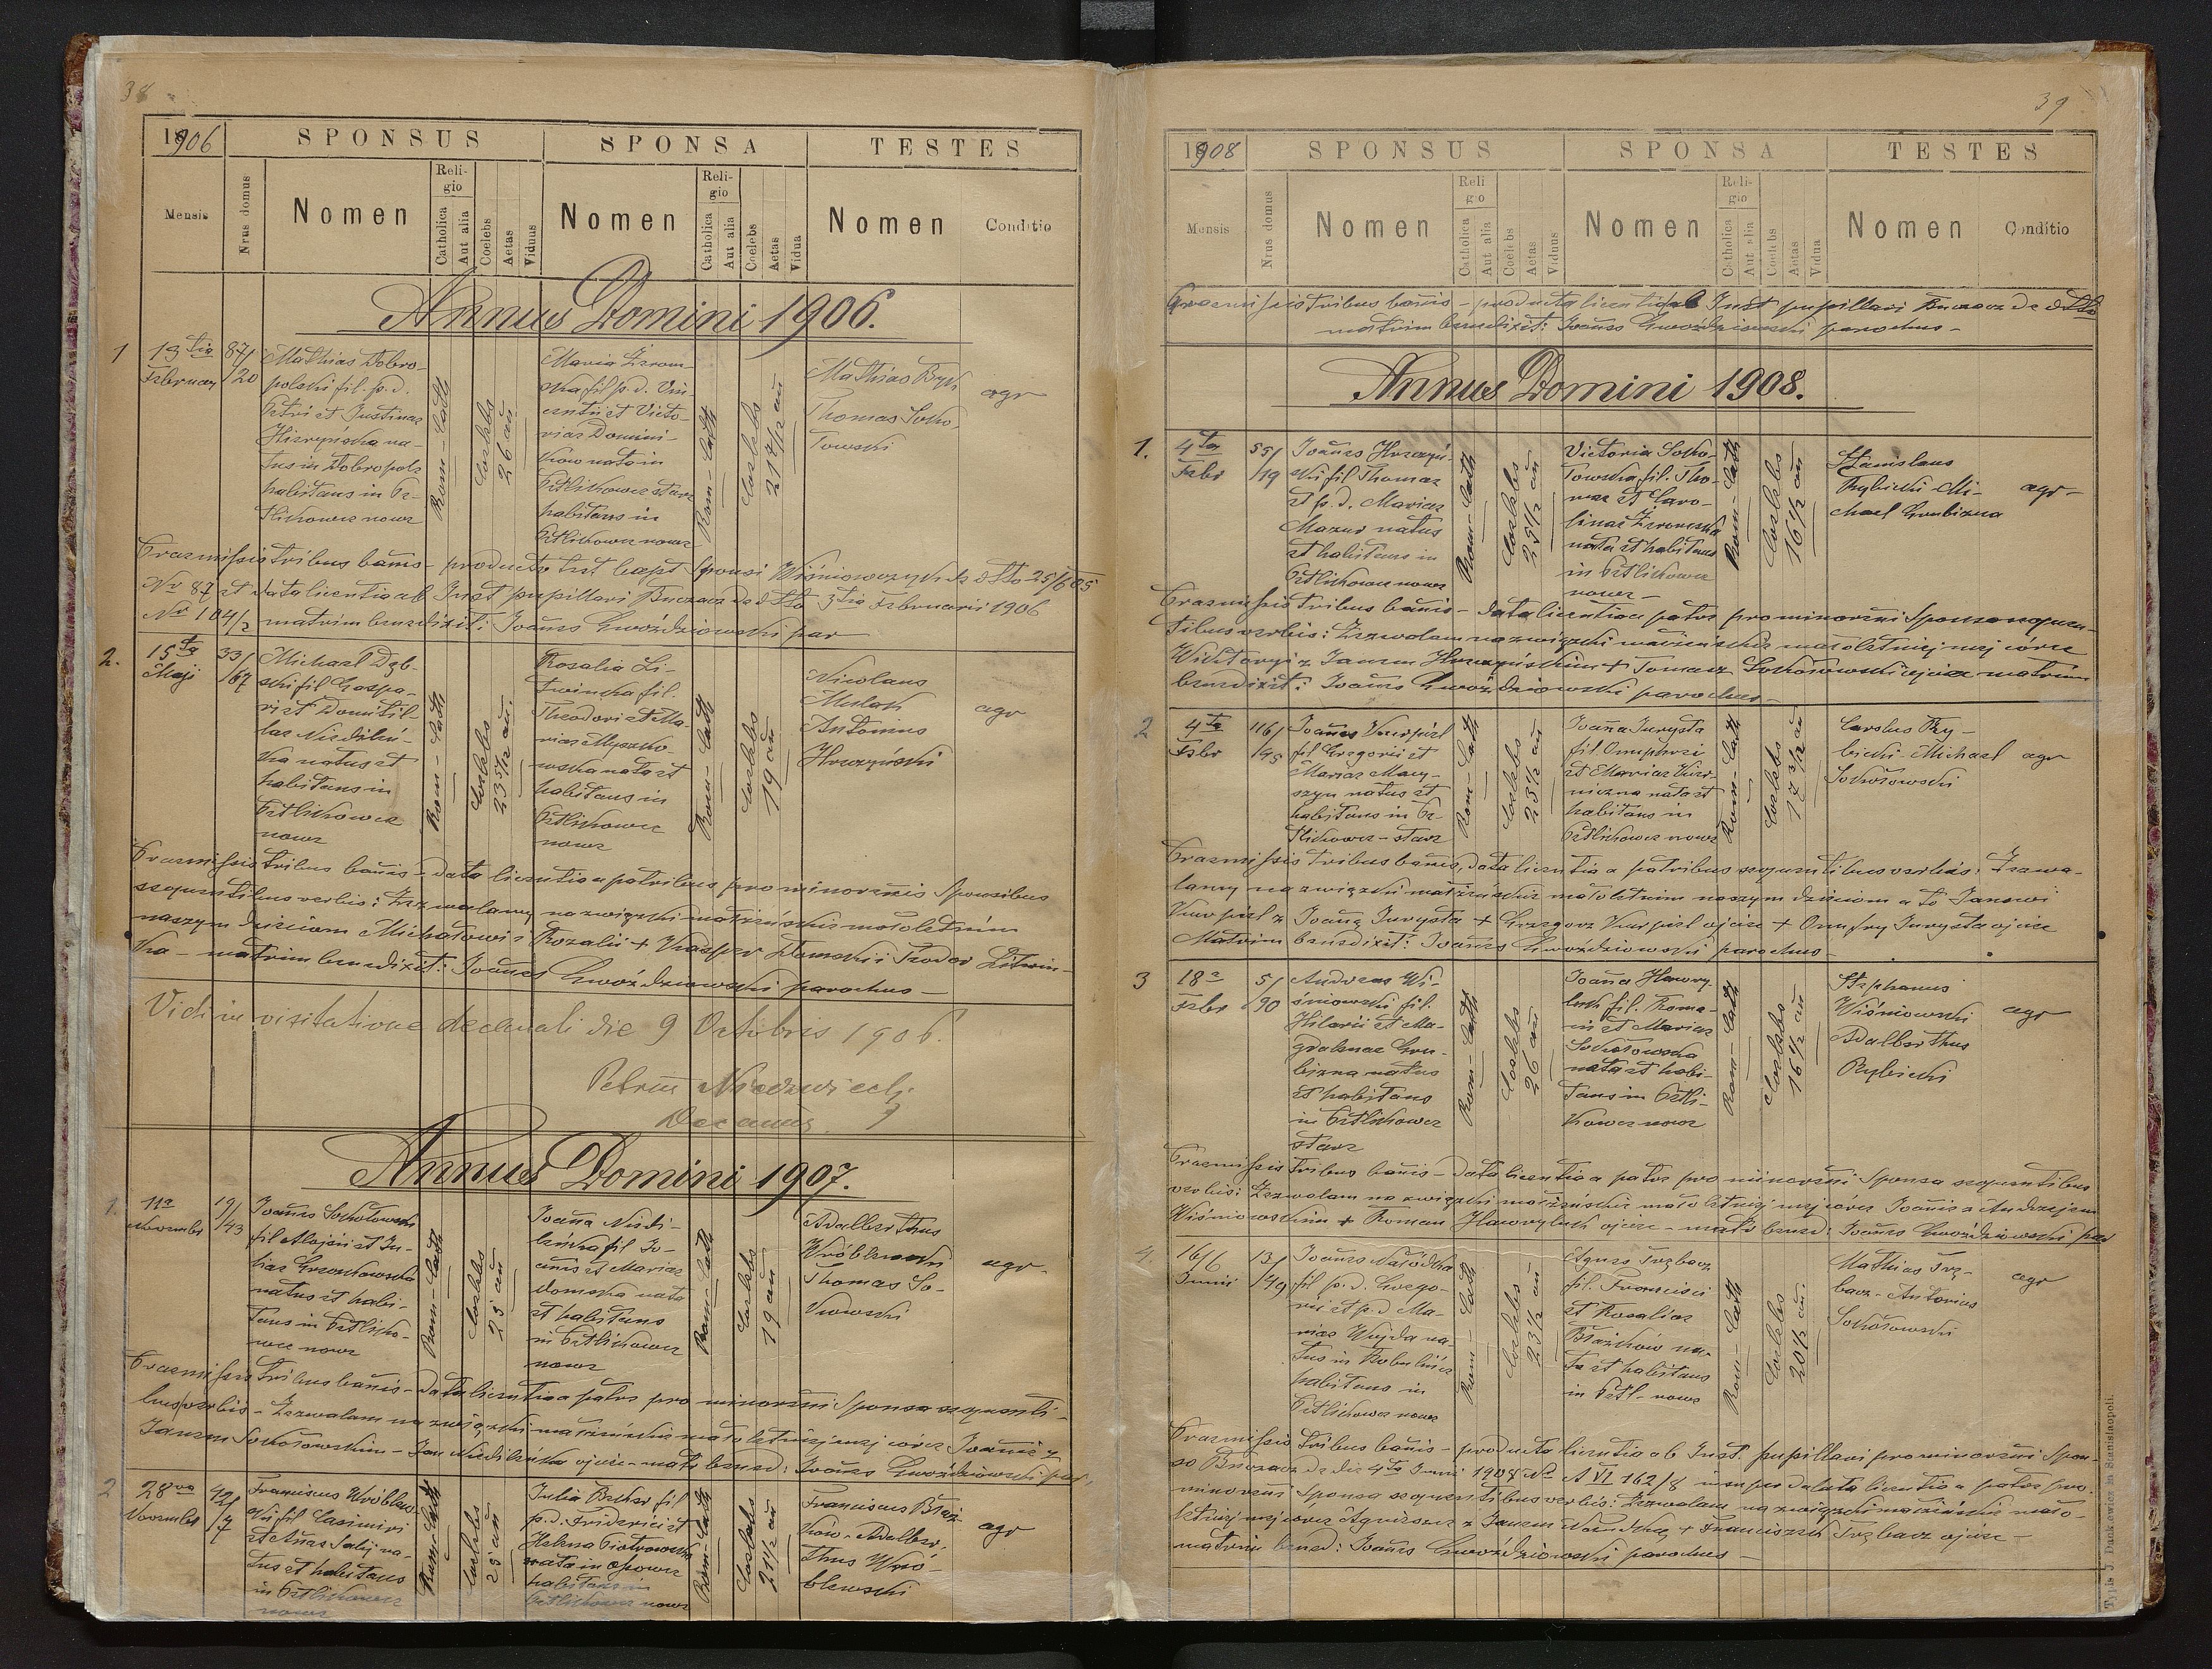 38
1906
SPONSUS
SPONSA
TESTES
Mensis
Nrus domus
Nomen
Religio
Catholica
Aut alia
Coelebs
Aetas
Viduus
Nomen
Religio
Catholica
Aut alia
Coelebs
Aetas
Vidua
Nomen
Conditio
Annus Domini 1906.
1
13 tia
Februar
87/
/20
Mathias Dobro-
polski fil. p. d.
Petri et Justinae
natus in Dobropole
habitans in Pe-
tlikowce nowe
Rom - Cath
Coelebs
26 an
Maria
fil p. d. Vin-
centii et Victo-
riae Domini-
ków nata in
Petlikowce stare
habitans in
Petlikowce nowe
Rom - Cath
Coelebs
21 1/2 an
Mathias Byk
Thomas Soko-
łowski
agr
Praemissis tribus bannis - producto test bapt Sponsi Wiśniowczyk de dtto 25/6 05
No 87 et data licentia ab Inst pupillari Buczacz de dtto 3 tia Februarii 1906
No 104/2 matrim benedixit: Joannes Gwoździowski par
2.
15 ta
Maji
33/
/67
Michael Dęb-
ski fil Caspa-
ri et Domitil-
lae Niedźwie-
cka natus et
habitans in
Petlikowce
nowe
Rom - Cath
Coelebs
23 5/12 an.
Rosalia Li-
twinka fil.
Theodori et Ma-
riae Myszko-
wska nata et
habitans in
Petlikowce
nowe
Rom - Cath
Coelebs
19 an
Nicolaus
Mulak
Antonius
Hreczyński
agr
Praemissis tribus bannis - data licentia a patribus pro minorenis Sponsibus
sequentibus verbis: Zezwalamy na związki małżeńskie małoletnim
naszym dzieciom Michałowi i Rozalii + Kasper Dembski i Teodor Litwin-
ka - matrim benedixit: Joannes Gwoździowski parochus -
Vidi in visitatione decanali die 9 Octobris 1906.
Petrus Niedzwiecki
Decanus
Annus Domini 1907.
1.
11a
Novembr
19/
/43
Joannes Sokołowski
fil Aloisii et Ju-
liae Grochowska
natus et habi-
tans in Petliko-
wce nowe
Rom - Cath
Coelebs
23 an
Joanna Niedź-
fil Jo-
annis et Mariae
Domska nata
et habitans
in Petlikowce
nowe
Rom - Cath
Coelebs
19 an
Adalberthus
Wróblewski
Thomas So-
kowski
agr.
Praemissis tribus bannis - data licentia a patre pro minoreni Sponsa sequenti-
bus verbis - Zezwalam na związki małżeńskie małoletniej mej córce Joannie z
Janem Sokołowskim - Jan ojciec - matr bened: Joannes Gwoździowski par,
2
28va
Novembr
42/
/7
Franciscus Wróblew-
ski fil Casimiri
et Annae Salij na-
tus et habitans
in Petlikowce
nowe
Rom - Cath
Coelebs
23 an
Julia Becker fil
p. d. Friderici et
Helena Piotrowska
nata in Osowce
habitans in
Petlikowce nowe
Rom - Cath
Coelebs
21 1/2 an
Franciscus Błaż-
ków - Adalber-
thus Wró-
blewski
agr
39
1908
SPONSUS
SPONSA
TESTES
Mensis
Nrus domus
Nomen
Religio
Catholica
Aut alia
Coelebs
Aetas
Viduus
Nomen
Religio
Catholica
Aut alia
Coelebs
Aetas
Vidua
Nomen
Conditio
Praemissis tribus bannis - producta licentia ab Inst pupillari Buczacz de dtto
matrim benedixit: Joannes Gwoździowski parochus -
Annus Domini 1908.
1.
4 ta
Febr
55/
/19
Joannes Hreczyń-
ski fil Thomae
et p. d. Mariae
Mazur natus
et habitans in
Petlikowce nowe
Rom - Cath
Coelebs
25 1/2 an
Victoria Soko-
łowska fil. Tho-
mae et Caro-
linae
nata et habitans
in Petlikowce
nowe -
Rom - Cath
Coelebs
16 1/2 an
Stanislaus
Rybicki - Mi-
chael Grubizna
agr -
Praemissis tribus bannis - data licentia a patre pro minoreni Sponsa sequen-
tibus verbis: Zezwalam na związki małżeńskie małoletniej mej córce
Wiktoryi z Janem Hreczyńskim + Tomasz Sokołowski ojciec matrim
benedixit: Joannes Gwoździowski parochus -
2
4 ta
Febr
116/
/45
Joannes Kurpiel
fil Gregorii et
Mariae Mary-
szyn natus et
habitans in Pe-
tlikowce - stare
Rom - Cath
Coelebs
23 1/2 an
Joanna Jurysta
fil Onuphrii
et Mariae
nata et
habitans in
Petlikowce nowe
Rom - Cath
Coelebs
17 3/12 an
Carolus Ry-
bicki - Michael
Sokołowski
agr
Praemissis tribus bannis, data licentia a patribus sequentibus verbis: Zezwa-
lamy na związki małżeńskie małoletnim naszym dzieciom a to Janowi
Kurpiel z Joanną Jurysta + Grzegorz Kurpiel ojciec + Onufry Jurysta ojciec
Matrim benedixit: Joannes Gwoździowski parochus -
3
18a
Febr
5/
/90
Andreas Wi-
śniowski fil.
Hilarii et Ma-
gdalenae Gru-
bizna natus
et habitans
in Petlikowce
stare
Rom - Cath
Coelebs
26 an
Joanna Hawry-
luk fil. Roma-
ni et Mariae
Sokołowska
nata et habi-
tans in Petli-
kowce nowe
Rom - Cath
Coelebs
16 1/2 an
Stephanus
Wiśniowski
Adalberthus
Rybicki
agr
Praemissis tribus bannis - data licentia a patre pro minoreni Sponsa sequentibus
verbis: Zezwalam na związki małżeńskie małoletniej mej córce Joannie z Andrzejem
Wiśniowskim + Roman Hawryluk ojciec - matr bened: Joannes Gwoździowski par
4.
16/6
Junii
13/
/49
Joannes Nałódka
fil p. d. Grego-
rii et p. d Ma-
riae Wujda na-
tus in Bobulińce
habitans in
Petlikowce nowe
Rom - Cath
Coelebs
23 1/2 an
Agnes Trębacz
fil. Francisci
et Rosaliae
Błażków na-
ta et habitans
in Petl - nowe
Rom - Cath
Coelebs
20 1/2 an.
Mathias Trę-
bacz - Antonius
Sokołowski
agr
Praemissis tribus bannis - producta licentia ab Inst. pupillari pro minoreni Spon-
so Buczacz de die 4 ta Junii 1908 No A VI 162/8 insuper data licentia a patre pro
minoreni Sponsa sequentibus verbis: Zezwalam na związki małżeńskie mało-
letniej mej córce Agnieszce z Janem + Franciszek Trębacz ojciec -
matrim bened: Joannes Gwoździowski parochus -
Typis J. Dankiewicz in Stanislaopoli.